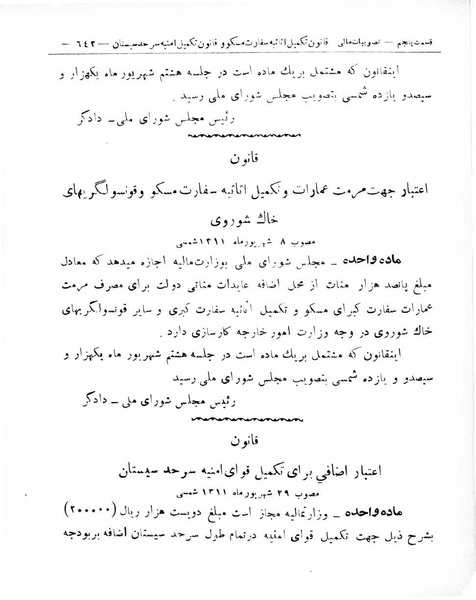 قسمت پنجم — تصویبات مالی قانون تکمیل اثاثیه سفارت مسکو و قانون تکمیل امنیه سرحد سیستان — ٦٤٣ —
اینقانون که مشتمل بریك ماده است در جلسه هشتم شهریور ماه یکهزار و
سیصدو یازده شمسی بتصویب مجلس شورای ملی رسید
رئیس مجلس شورای ملی ـ دادگر
قانون
اعتبار جهت مرمت عمارات و تکمیل اثاثیه سفارت مسکو وقونسولگریهای
خاك شوروی
مصوب ۸ شهریور ماه ۱۳۱۱ شمسی
ماده واحده ـ مجلس شورای ملی بوزارت مالیه اجازه میدهد که معادل
مبلغ پانصد هزار منات از محل اضافه عایدات مناتی دولت برای مصرف مرمت
عمارات سفارت کبرای مسکو و تکمیل اثاثیه سفارت کبری و سایر قونسولگریهای
خاك شوروی در وجه وزارت امور خارجه کارسازی دارد .
اینقانون که مشتمل بریك ماده است در جلسه هشتم شهریور ماه یکهزار و
سیصدو و یازده شمسی بتصویب مجلس شورای ملی رسید
رئیس مجلس شورای ملی ـ دادگر
قانون
اعتبار اضافی برای تکمیل قوای امنیه سرحد سیستان
مصوب ۲۹ شهریور ماه ۱۳۱۱ شمسی
ماده واحده ـ وزارتمالیه مجاز است مبلغ دویست هزار ریال (۲۰۰۰۰۰)
بشرح ذیل جهت تکمیل قوای امنیه درتمام طول سرحد سیستان اضافه بربودجه